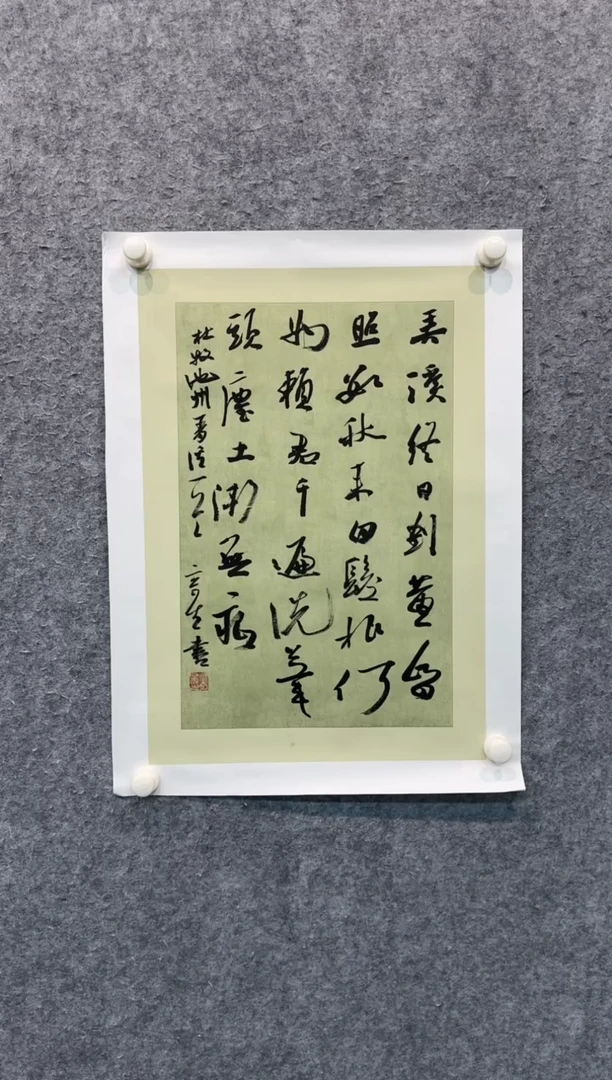 弄溪終日到黃昏
照數秋來白髮根何
物賴君千遍洗筆
頭塵土漸無痕
杜牧池州清溪 書